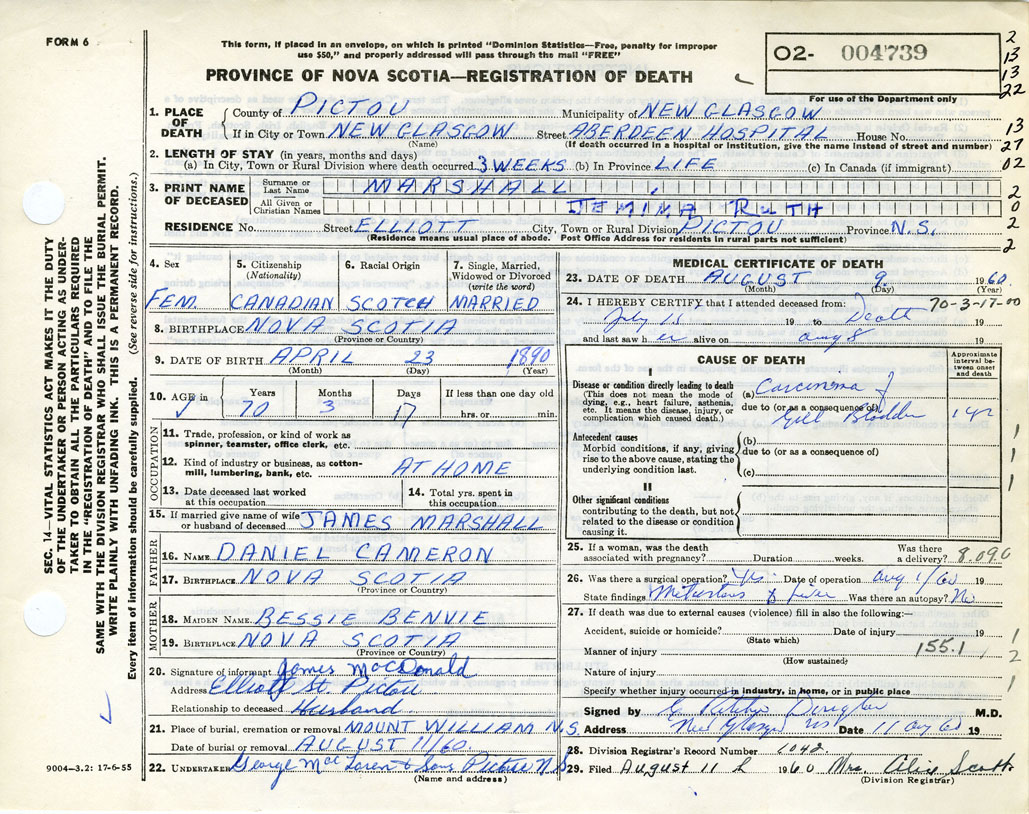 FORM 6
This form, if placed in an envelope, on which is printed "Dominion Statistics—Free, penalty for improper
use $50," and properly addressed will pass through the mail "FREE"
PROVINCE OF NOVA SCOTIA—REGISTRATION OF DEATH
O2- 004739
For use of the Department only
2
13
13
22
13
27
02
2
0
2
2
1. PLACE OF DEATH
County of PICTOU Municipality of NEW GLASGOW
If in City or Town NEW GLASGOW Street ABERDEEN HOSPITAL House No.
(Name) (If death occurred in a hospital or institution, give the name instead of street and number)
2. LENGTH OF STAY (in years, months and days)
(a) In City, Town or Rural Division where death occurred 3 WEEKS (b) In Province LIFE (c) In Canada (if immigrant)
3. PRINT NAME OF DECEASED
Surname or Last Name MARSHALL,
All Given or Christian Names JEMIMA RUTH
RESIDENCE No. Street ELLIOTT City, Town or Rural Division PICTOU Province N.S.
(Residence means usual place of abode. Post Office Address for residents in rural parts not sufficient)
4. Sex
FEM.
5. Citizenship
(Nationality)
CANADIAN
6. Racial Origin
SCOTCH
7. Single, Married, Widowed or Divorced
(write the word)
MARRIED
8. BIRTHPLACE NOVA SCOTIA
(Province or Country)
9. DATE OF BIRTH APRIL 23 1890
(Month) (Day) (Year)
10. AGE in Years Months Days If less than one day old
70 3 17 hrs. or min.
OCCUPATION
11. Trade, profession, or kind of work as
spinner, teamster, office clerk, etc.
12. Kind of industry or business, as cotton-
mill, lumbering, bank, etc. AT HOME
13. Date deceased last worked
at this occupation
14. Total yrs. spent in
this occupation
15. If married give name of wife
or husband of deceased JAMES MARSHALL
FATHER
16. NAME DANIEL CAMERON
17. BIRTHPLACE NOVA SCOTIA
(Province or Country)
MOTHER
18. MAIDEN NAME BESSIE BENVIE
19. BIRTHPLACE NOVA SCOTIA
(Province or Country)
20. Signature of informant James MacDonald
Address Elliott St. Pictou
Relationship to deceased Husband
21. Place of burial, cremation or removal MOUNT WILLIAM N.S.
Date of burial or removal AUGUST 11/60
22. UNDERTAKER George MacLaren & Sons Pictou N.S
(Name and address)
MEDICAL CERTIFICATE OF DEATH
23. DATE OF DEATH AUGUST 9. 1960.
(Month) (Day) (Year)
24. I HEREBY CERTIFY that I attended deceased from: 70-3-17-00
July 15 19 to Death 19
and last saw her alive on aug 8 19
CAUSE OF DEATH
Approximate interval between onset and death
I
Disease or condition directly leading to death
(This does not mean the mode of
dying, e.g., heart failure, asthenia,
etc. It means the disease, injury, or
complication which caused death.)
(a) Carcinoma of
due to (or as a consequence of)
Gall Bladder
Antecedent causes
Morbid conditions, if any, giving
rise to the above cause, stating the
underlying condition last.
(b)
due to (or as a consequence of)
(c)
1
1
1
II
Other significant conditions
contributing to the death, but not
related to the disease or condition
causing it.
25. If a woman, was the death
associated with pregnancy? Duration weeks.
Was there
a delivery? 8.090
26. Was there a surgical operation? Yes Date of operation aug 1/60 19
State findings Metastases of liver Was there an autopsy? No
27. If death was due to external causes (violence) fill in also the following:—
Accident, suicide or homicide? Date of injury 19
(State which)
Manner of injury 155.1
(How sustained)
Nature of injury
1
2
1
Specify whether injury occurred in industry, in home, or in public place
Signed by M.D.
Address New Glasgow NS Date 11 aug 60 19
28. Division Registrar's Record Number 1042
29. Filed August 11th 1960 Mrs. Alice Scott
(Division Registrar)
SEC. 14—VITAL STATISTICS ACT MAKES IT THE DUTY
OF THE UNDERTAKER OR PERSON ACTING AS UNDER-
TAKER TO OBTAIN ALL THE PARTICULARS REQUIRED
IN THE "REGISTRATION OF DEATH" AND TO FILE THE
SAME WITH THE DIVISION REGISTRAR WHO SHALL ISSUE THE BURIAL PERMIT.
WRITE PLAINLY WITH UNFADING INK. THIS IS A PERMANENT RECORD.
Every item of information should be carefully supplied. (See reverse side for instructions.)
9004-3.2: 17-6-55